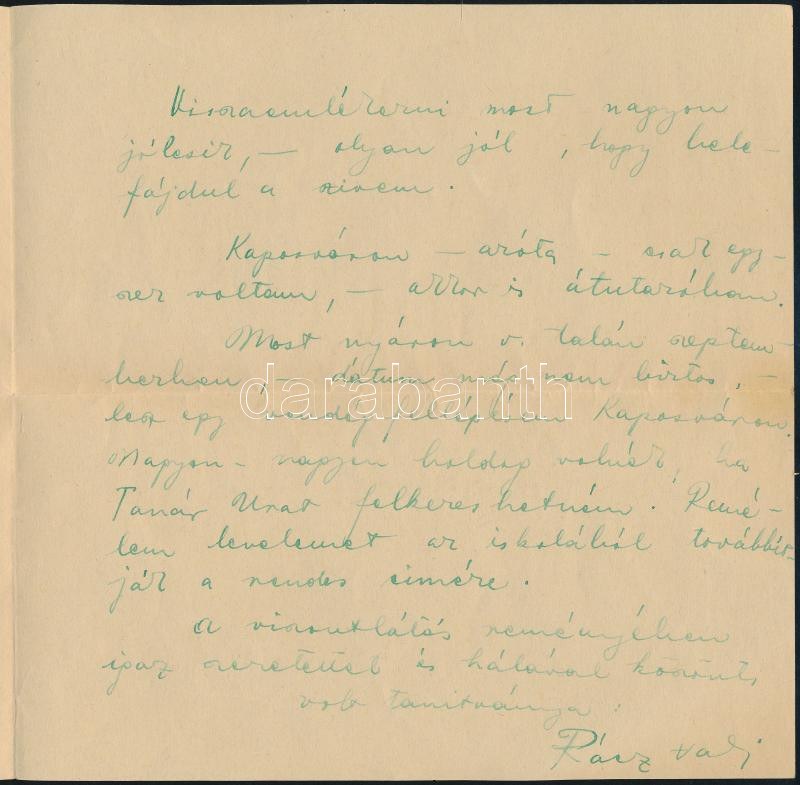 Visszaemlékezni most nagyon
jólesik, — olyan jól, hogy bele-
fájdul a szivem.
Kaposváron — azóta — csak egy-
szer voltam, — akkor is átutazóban.
Most nyáron v. talán szeptem-
berben, — dátum még nem biztos, —
lesz egy vendégfellépésem Kaposváron.
Nagyon - nagyon boldog volnék, ha
Tanár Urat felkereshetném. Remé-
lem levelemet az iskolából továbbít-
ják a rendes cimére.
A viszontlátás reményében
igaz szeretettel és hálával köszönti
volt tanitványa:
Rácz Vali
darabanth